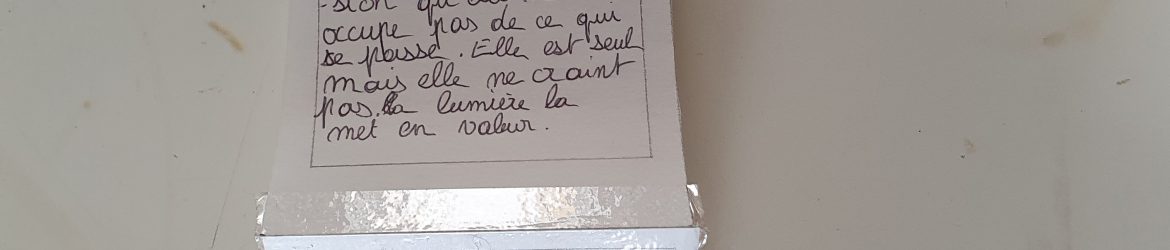 -sion qu'
occupe pas de ce qui
se passe. Elle est seul
mais elle ne craint
pas. La lumière la
met en valeur.